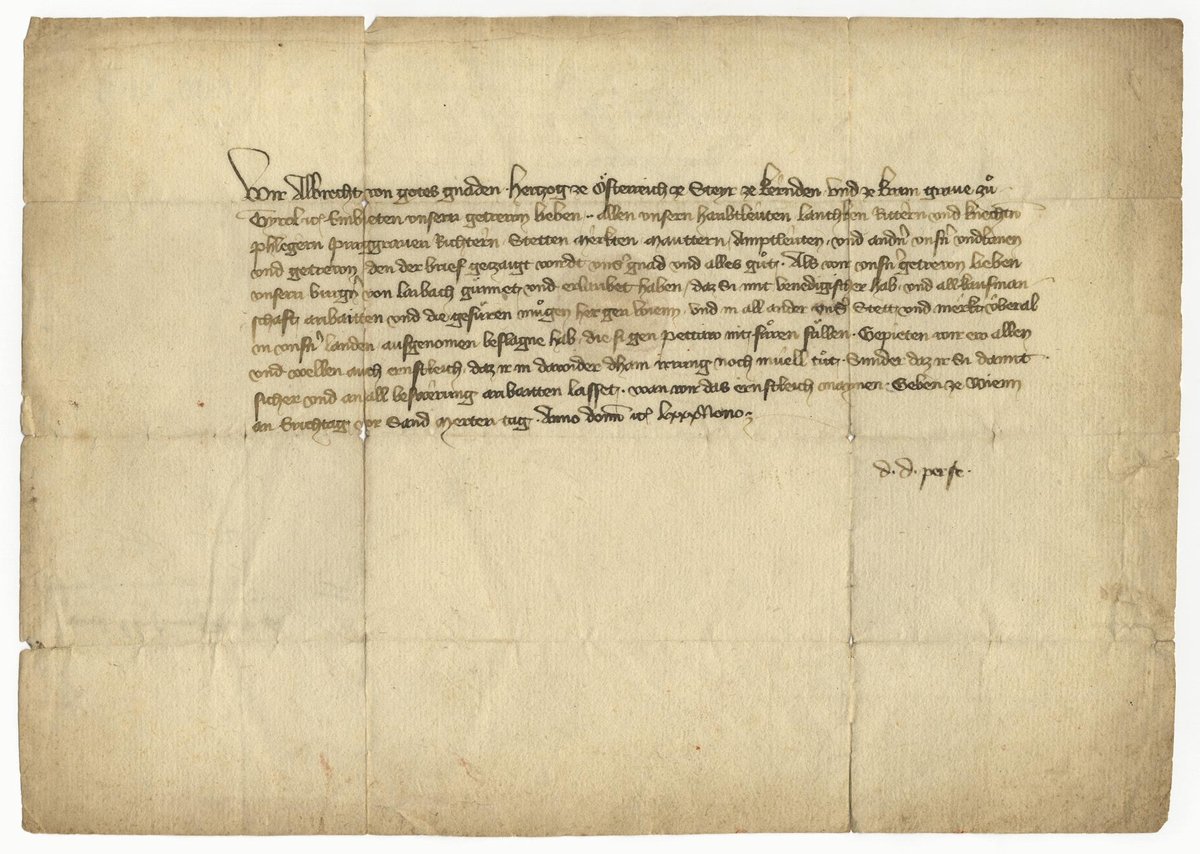 Wir Albrecht von gotes gnaden Herzog ze Österreich ze Steyr ze kernden und ze krain grave zů
Tyrol etc. Embieten unsern getrewn lieben allen unsern haubtleuten Lantherren Rittern und knechten
phlegern purggraven Richtern Stetten Merkten Mauttern Amptleuten und andern unsern undtanen
und getrewn den der brief geczaigt wirdt unser gnad und alles gůt. Als wir unsern getrewn lieben
unsern burgern von laibach gunnet und erlaubet haben daz Si mit venedigischer hab und all kaufman
schaft arbaitten und die gefüren mügen her gen wienn und in all ander unser Stett und merkt überal
in unsern landen ausgenomen beslagne hab die si gen pettaw nit füren süllen. Gepieten wir ew allen
und wellen auch ernstleich daz ir in dawider dhain irrung noch müe tůt. Sunder daz ir Si damit
sicher und an all beswerung arbaitten lasset. wan wir das ernstleich maynen. Geben ze Wienn
an Erichtag vor Sand Merten tag. Anno domini etc. lxxxNono.
d. d. per se.